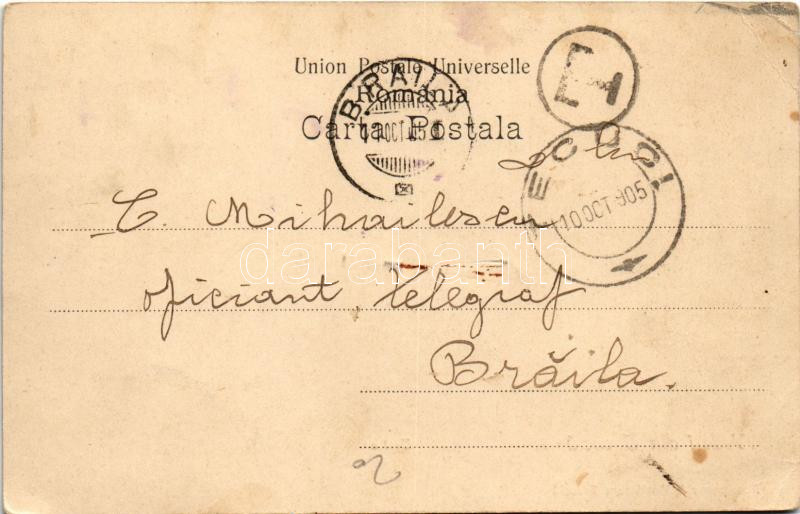 Union Postale Universelle
România
Carta Postala
BRAILA
TECUCI
10 OCT 905
C. Mihailescu
oficiant telegraf
Brăila.
darabanth